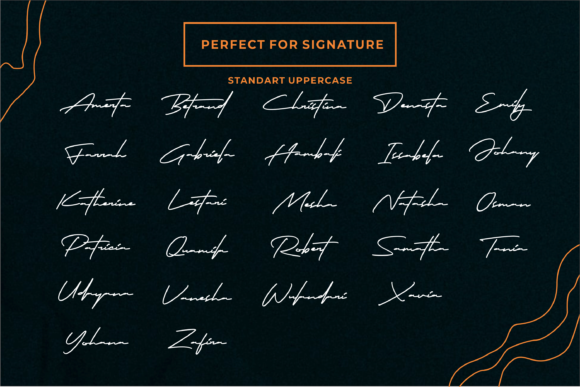 PERFECT FOR SIGNATURE
STANDART UPPERCASE
Amerta Betrand Christina Denasta Emily
Farrah Gabriela Hambali Issabela Johany
Katherine Lestari Mesha Natasha Osman
Patricia Quamila Robert Samatha Tania
Udayana Vanesha Wulandari Xavia
Yohana Zafira